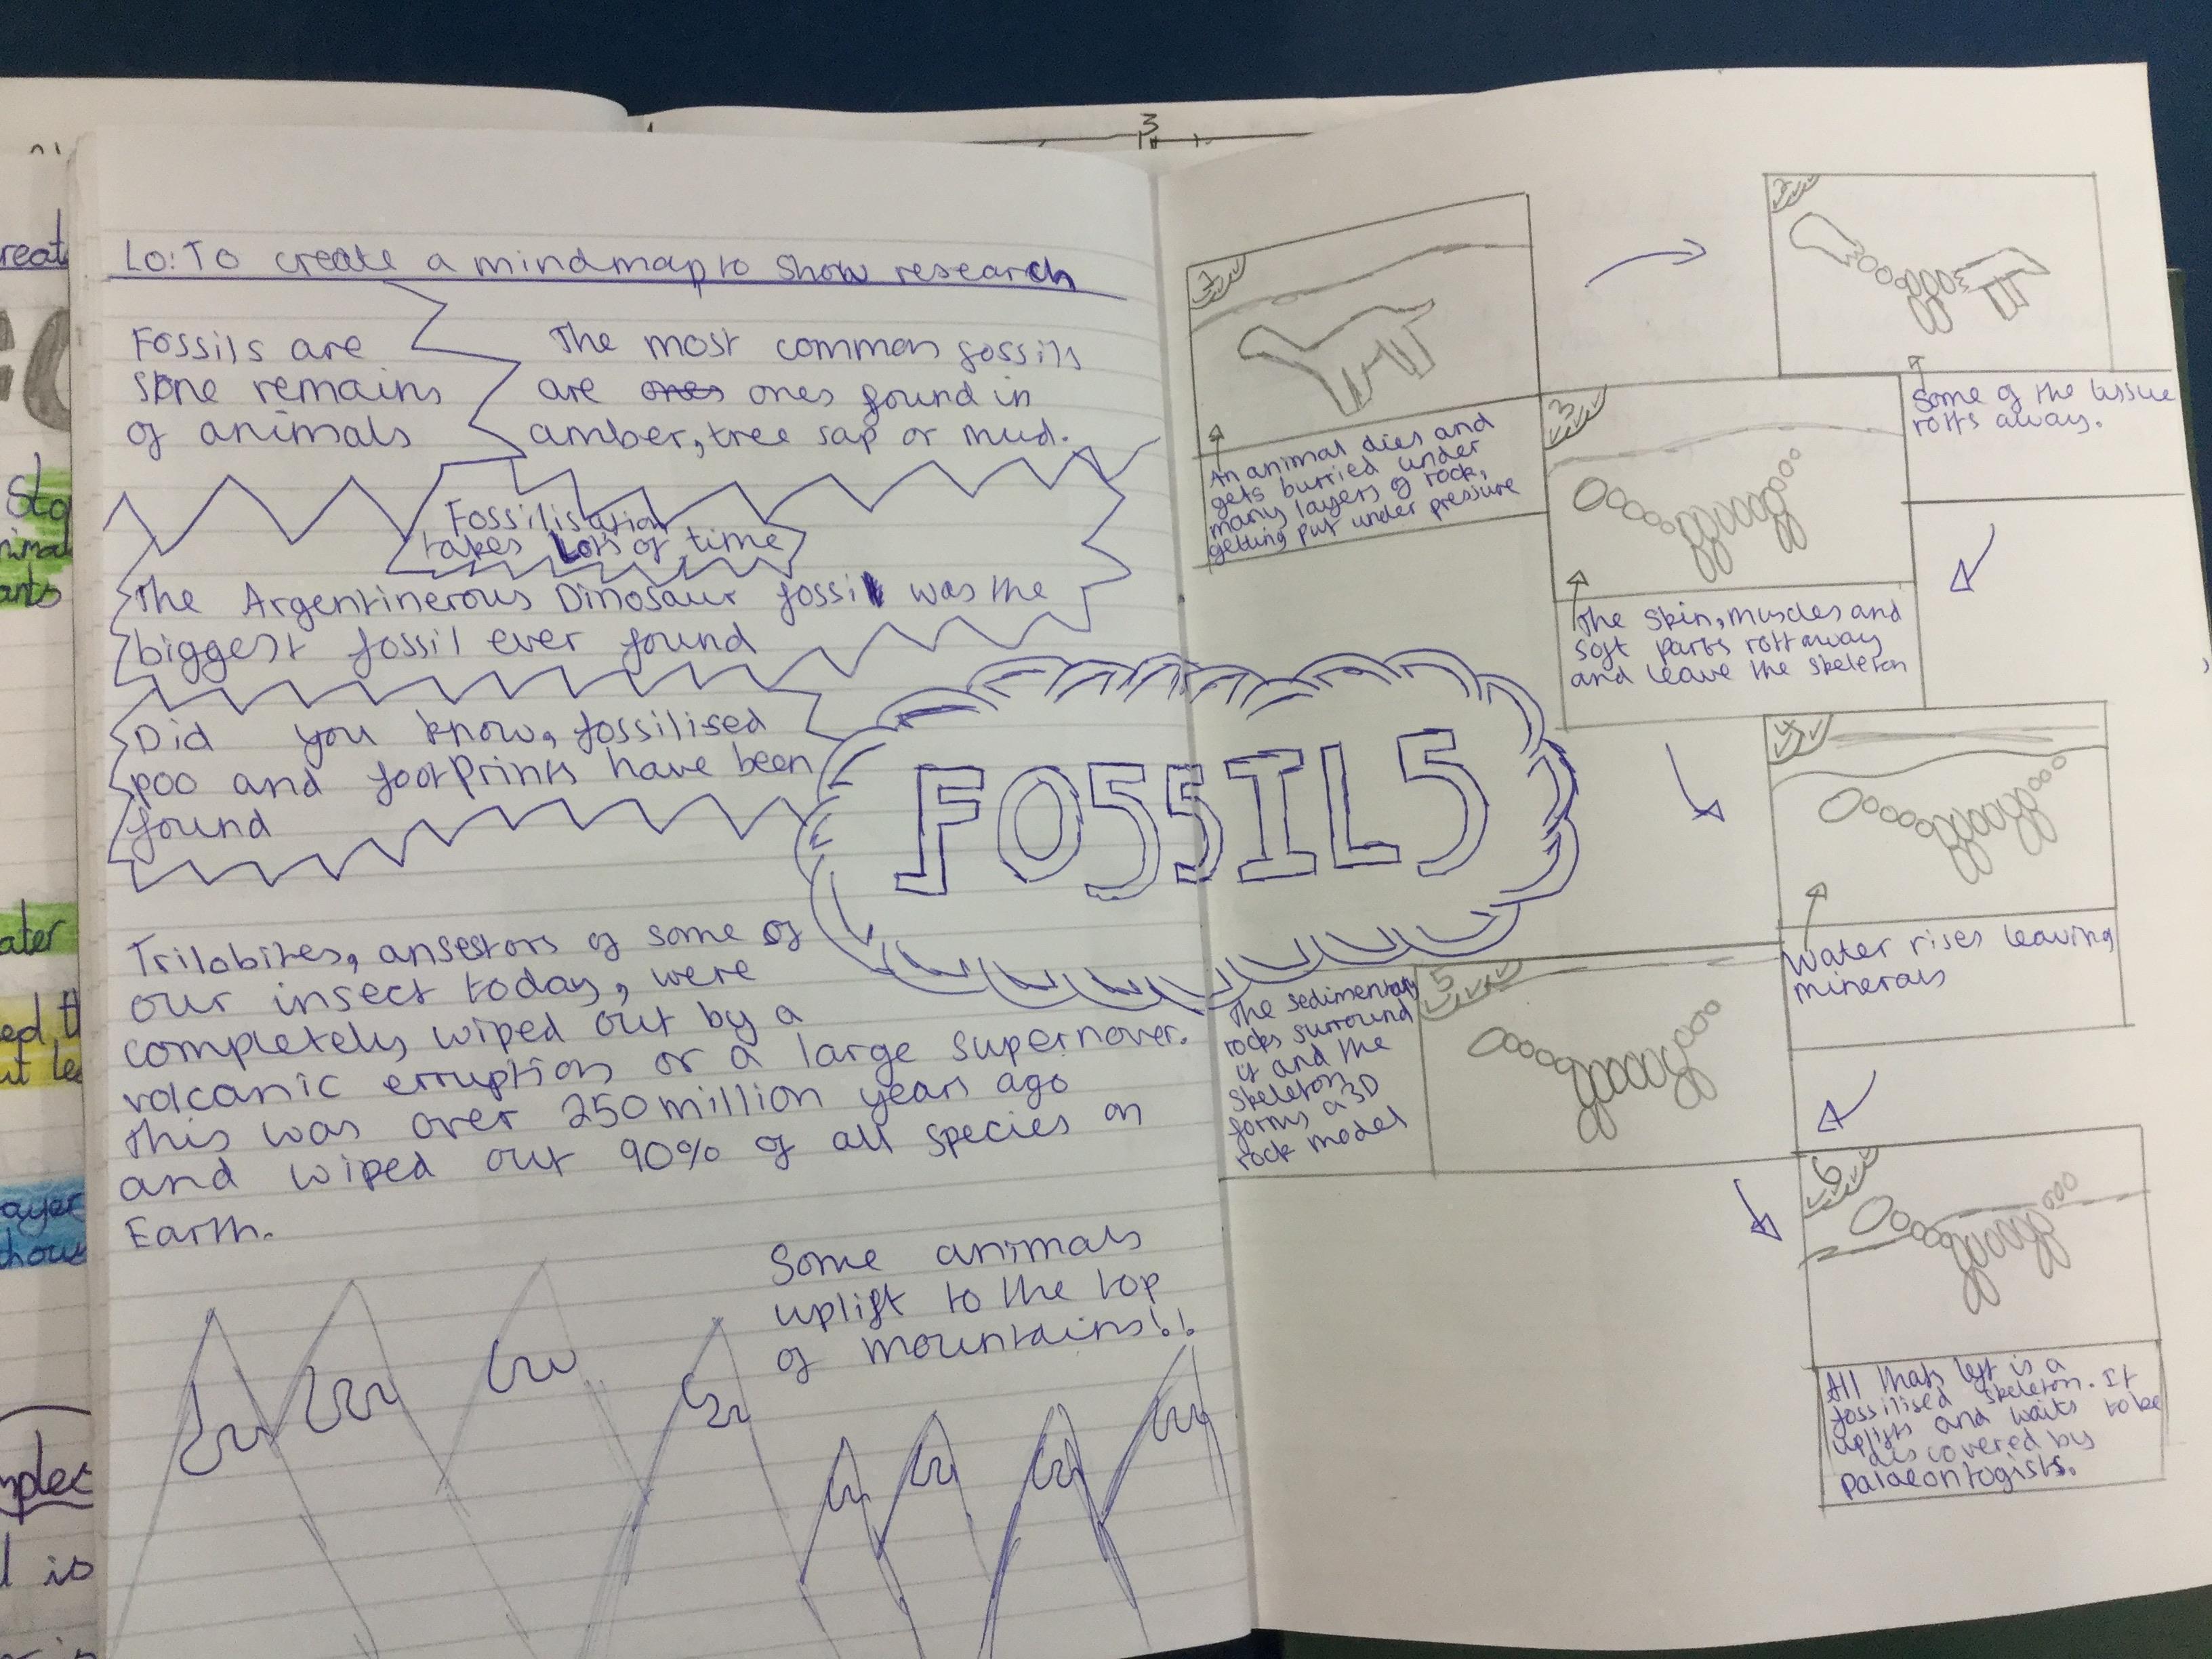 LO: To create a mindmap to show research
Fossils are
stone remains
of animals
The most common fossils
are ones ones found in
amber, tree sap or mud.
Fossilisation
takes Lots of time
The Argentinerous Dinosaur fossil was the
biggest fossil ever found
Did you know, fossilised
poo and footprints have been
found
FOSSILS
Trilobites, ansestors of some of
our insect today, were
completely wiped out by a
volcanic erruption or a large supernover.
This was over 250 million years ago
and wiped out 90% of all species on
Earth.
Some animals
uplift to the top
of mountains!!
1
An animal dies and
gets burried under
many layers of rock,
getting put under pressure
2
Some of the tissue
rotts away.
3
The skin, muscles and
soft parts rott away
and leave the skeleton
4
Water rises leaving
minerals
5
The sedimentary
rocks surround
it and the
skeleton
forms a 3D
rock model
6
All thats left is a
fossilised skeleton. It
uplifts and waits to be
discovered by
palaeontogists.
3
reat
ants
ater
ayer
l is